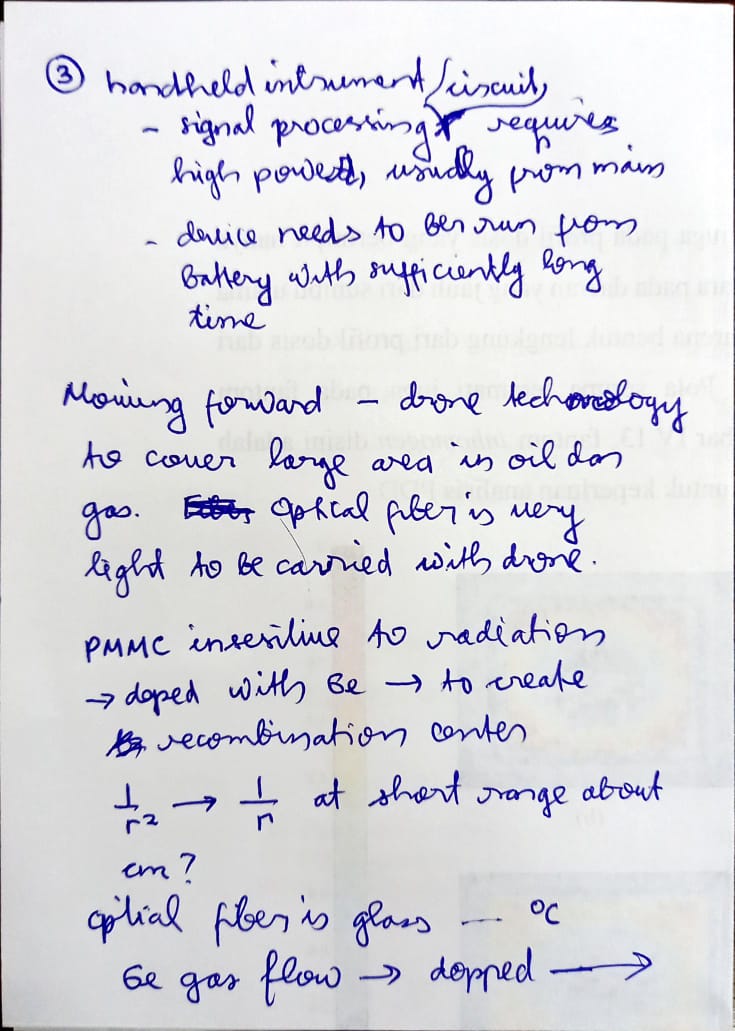 ③ handheld intrument/circuit,
- signal processing requires
high power, usually from main
- device needs to be run from
Battery with sufficiently long
time
Moving forward - drone technology
to cover large area in oil dan
gas. Optical fiber is very
light to be carried with drone.
PMMC insensitive to radiation
→ doped with Ge → to create
recombination center
1/r² → 1/r at short range about
cm?
optical fiber is glass — °C
Ge gas flow → dopped →